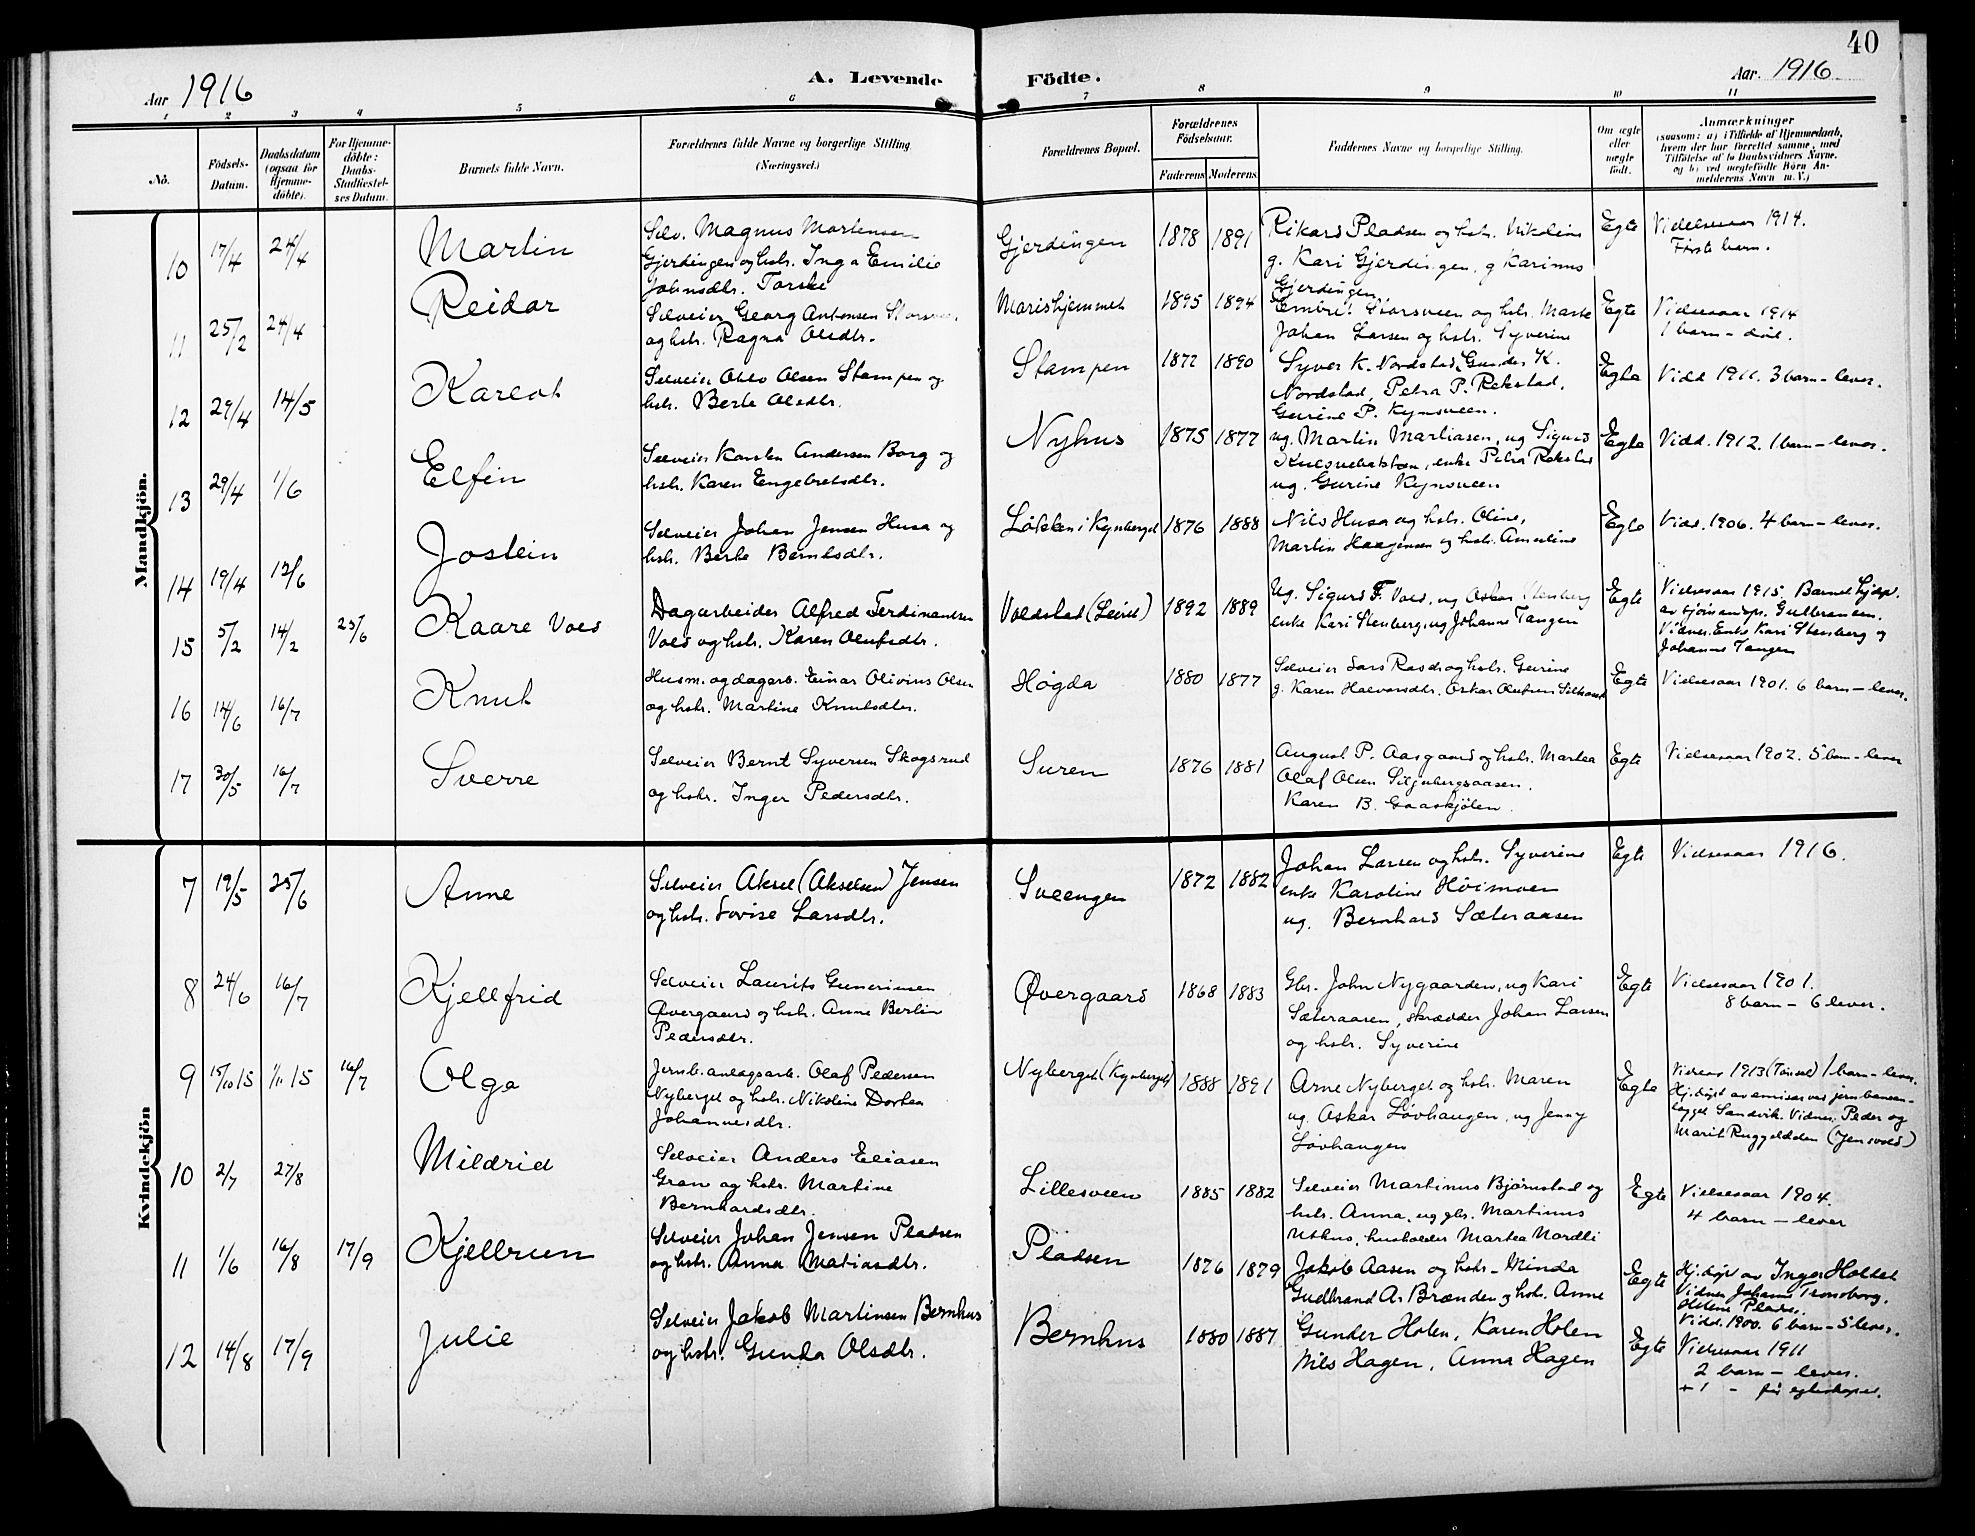 40
Aar 1916
A. Levende Födte.
Aar. 1916
1 2 3 4 5 6 7 8 9 10 11
No.
Födsels-
Datum.
Daabsdatum
(ogsaa for
Hjemme-
döbte).
For Hjemme-
döbte:
Daabs-
Stadfæstel-
ses Datum.
Barnets fulde Navn.
Forældrenes fulde Navne og borgerlige Stilling
(Næringsvei.)
Forældrenes Bopæl.
Forældrenes
Födselsaar.
Faderens Moderens
Faddernes Navne og borgerlige Stilling.
Om ægte
eller
uægte
født.
Anmærkninger
(saasom: a) i Tilfælde af Hjemmedaab,
hvem der har forrettet samme, med
Tilföielse af to Daabsvidners Navne.
og b) ved uægtefödte Börn An-
melderens Navn m. V.)
Mandkjön.
10 17/4 24/4 Martin
Selv. Magnus Mortensen
Gjerdingen og hstr. Inga Emilie
Johnsdtr. Torske
Gjerdingen 1878 1891
Rikard Pladsen og hstr. Nikoline
g. Kari Gjerdingen, g Karinus
Gjerdingen
Egte
Vielsesaar 1914.
Første barn.
11 25/2 24/4 Reidar
Selveier Georg Antonsen
og hstr. Ragna Olsdtr.
Marishjemmet 1895 1894
Embret Storsveen og hstr. Marte
Johan Larsen og hstr. Syverine
Egte
Vielsesaar 1914
1 barn – død.
12 29/4 14/5 Kareot
Selveier Olav Olsen Stampen og
hstr. Berte Olsdtr.
Stampen 1872 1890
Syver K. Nordstad, Gunder K.
Nordstad, Petra P. Rekstad,
Gurine P. Kynsveen.
Egte
Vidd 1911. 3 barn – lever.
13 29/4 1/6 Elfin
Selveier Karsten Andersen Borg og
hstr. Karen Engebretsdtr.
Nyhus 1875 1877
ug. Martin Martiasen, ug Sigurd
enke Petra Rekstad
ug. Gurine Kynsveen
Egte
Vidd. 1912. 1 barn – lever.
14 19/4 12/6 Jostein
Selveier Johan Jensen Husa og
hstr. Berte Berntsdtr.
Løkken i Kynberget 1876 1888
Nils Husa og hstr. Oline,
Martin Haagensen og hstr. Amerline
Egte
Vidd. 1906. 4 barn – lever.
15 5/2 14/2 25/6 Kaare Vold
Dagarbeider Alfred Ferdinandsen
Vold og hstr. Karen Olufsdtr.
Voldstad (Leiret) 1892 1889
Ug. Sigurd F. Vold, ug Oskar Stenberg
enke Kari Stenberg, ug Johanne Tangen
Egte
Vielsesaar 1915. Barnet hjdøpt
av Gulbransen.
Vidner: Enke Kari Stenberg og
Johanne Tangen
16 14/6 16/7 Knut
Husm. og dagarb. Einar Olivius Olsen
og hstr. Martine Knutsdtr.
Høgda 1880 1877
Selveier Lars Rasd og hstr. Gurine
g. Karen Halvorsdtr. Oskar Olufsen
Egte
Vielsesaar 1901. 6 barn – lever.
17 30/5 16/7 Sverre
Selveier Bernt Syversen Skogsrud
og hstr. Inger Pedersdtr.
Suren 1876 1881
August P. Aasgaard og hstr. Martea
Olaf Olsen
Karen B. Graaskjölen.
Egte
Vielsesaar 1902. 5 barn – lever
Kvindekjön
7 19/5 25/6 Anne
Selveier Aksel (Akselsen) Jensen
og hstr. Lovise Larsdtr.
Sveengen 1872 1882
Johan Larsen og hstr. Syverine
enke Karoline Höimoen
ug. Bernhard Sæteraasen
Egte
Vielsesaar 1916.
8 24/6 16/7 Kjellfrid
Selveier Laurits Gunerinsen
Øvergaard og hstr. Anne Berlin
Pedersdtr.
Øvergaard 1868 1883
Gbr. John Nygaarden, ug Kari
Sæteraasen, skrædder Johan Larsen
og hstr. Syverine
Egte
Vielsesaar 1901.
8 barn – 6 lever.
9 15/10 15 1/11 15 16/7 Olga
Jernb.anlægsarb. Olaf Pedersen
Nyberget og hstr. Nikoline Dortea
Johannesdtr.
Nyberget (Kynberget) 1888 1891
Arne Nyberget og hstr. Maren
ug. Oskar Løvhaugen, ug Jenny
Løvhaugen
Egte
Vielsesaar 1913 (Tönset) 1 barn – lever.
Hj.døpt av emissær ved jernbanean-
lægget Sandvik. Vidner Peder og
Marit Ruggeldalen (Jensvold)
10 2/7 27/8 Mildrid
Selveier Anders Eliasen
Gran og hstr. Martine
Bernhardsdtr.
Lillesveen 1885 1882
Selveier Martinus Bjørnstad og
hstr. Anna, ug gbr. Martinus
Uthus, husholder Martea Nordli
Egte
Vielsesaar 1904.
4 barn – lever
11 1/6 16/8 17/9 Kjellrun
Selveier Johan Jensen Pladsen
og hstr. Anna Matiasdtr.
Pladsen 1876 1879
Jakob Aasen og hstr – Minda
Gudbrand A. Brænden og hstr. Anne
Egte
Hj.døpt av Inger Holtet
Vidner Johanne Tronsborg,
Helene Pladsen.
Vidd. 1900. 6 barn – 5 lever.
12 14/8 17/9 Julie
Selveier Jakob Martinsen Bernhus
og hstr. Gunda Olsdtr.
Bernhus 1880 1887
Gunder Holen, Karen Holen
Nils Hagen, Anna Hagen
Egte
Vielsesaar 1911
2 barn – lever.
+ 1 – før egteskapet.